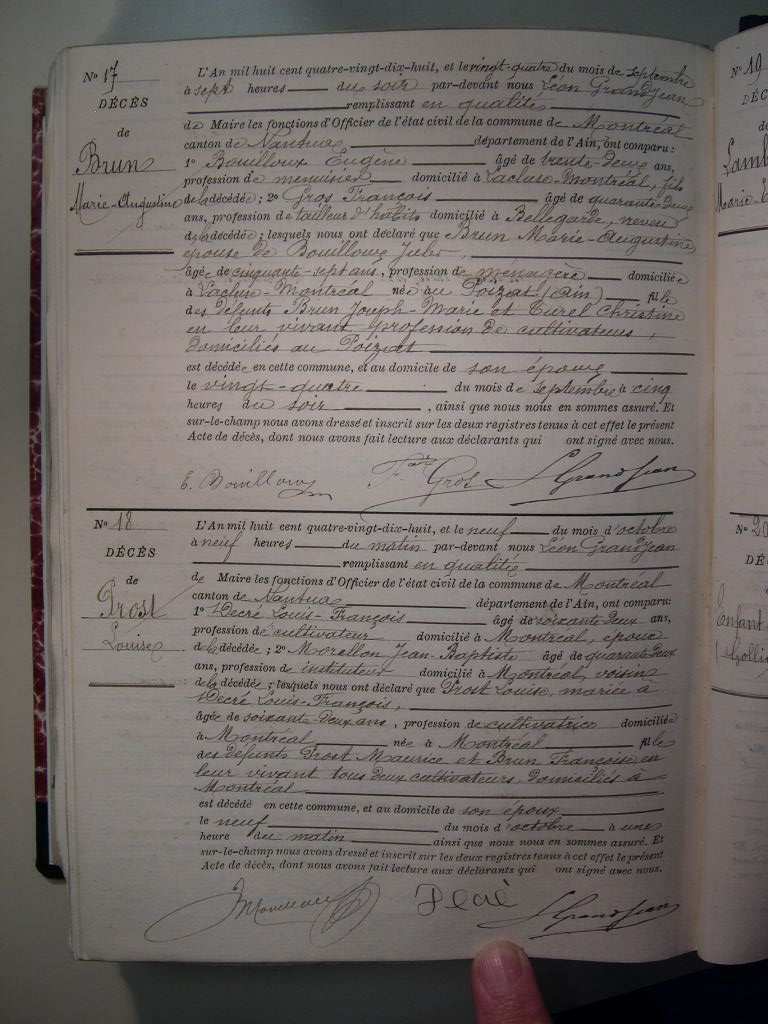 No 17
DÉCÈS
de
Brun
Marie-Augustine
L'An mil huit cent quatre-vingt-dix-huit, et le vingt-quatre du mois de septembre
à sept heures du soir par-devant nous Léon Grandjean
remplissant en qualité
de Maire les fonctions d'Officier de l'état civil de la commune de Montréal
canton de Nantua département de l'Ain, ont comparu:
1o Bouilloux Eugène âgé de trente-deux ans,
profession de menuisier domicilié à Lacluse-Montréal, fils
de la décédée; 2o Gros François âgé de quarante-deux
ans, profession de tailleur d'habits domicilié à Bellegarde, neveu
de la décédée; lesquels nous ont déclaré que Brun Marie-Augustine
épouse de Bouilloux Jules,
âgée de cinquante-sept ans, profession de ménagère domiciliée
à Lacluse-Montréal née au Poizat (Ain) fille
des défunts Brun Joseph-Marie et Curel Christine
en leur vivant profession de cultivateurs,
domiciliés au Poizat
est décédée en cette commune, et au domicile de son époux
le vingt-quatre du mois de septembre à cinq
heures du soir, ainsi que nous nous en sommes assuré. Et
sur-le-champ nous avons dressé et inscrit sur les deux registres tenus à cet effet le présent
Acte de décès, dont nous avons fait lecture aux déclarants qui ont signé avec nous.
E. Bouilloux Gros L Grandjean
No 18
DÉCÈS
de
Prost
Louise
L'An mil huit cent quatre-vingt-dix-huit, et le neuf du mois d'octobre
à neuf heures du matin par-devant nous Léon Grandjean
remplissant en qualité
de Maire les fonctions d'Officier de l'état civil de la commune de Montréal
canton de Nantua département de l'Ain, ont comparu:
1o Decré Louis-François âgé de soixante deux ans,
profession de cultivateur domicilié à Montréal, époux
de la décédée; 2o Morellon Jean-Baptiste âgé de quarante deux
ans, profession de instituteur domicilié à Montréal, voisin
de la décédée; lesquels nous ont déclaré que Prost Louise, mariée à
Decré Louis-François,
âgée de soixante-deux ans, profession de cultivatrice domiciliée
à Montréal née à Montréal fille
des défunts Prost Maurice et Brun Françoise, en
leur vivant tous deux cultivateurs, domiciliés à
Montréal
est décédé en cette commune, et au domicile de son époux
le neuf du mois d'octobre à une
heure du matin ainsi que nous nous en sommes assuré. Et
sur-le-champ nous avons dressé et inscrit sur les deux registres tenus à cet effet le présent
Acte de décès, dont nous avons fait lecture aux déclarants qui ont signé avec nous.
L Grandjean
No 19
DÉC
Marie-
No 20
DÉ
Enfant